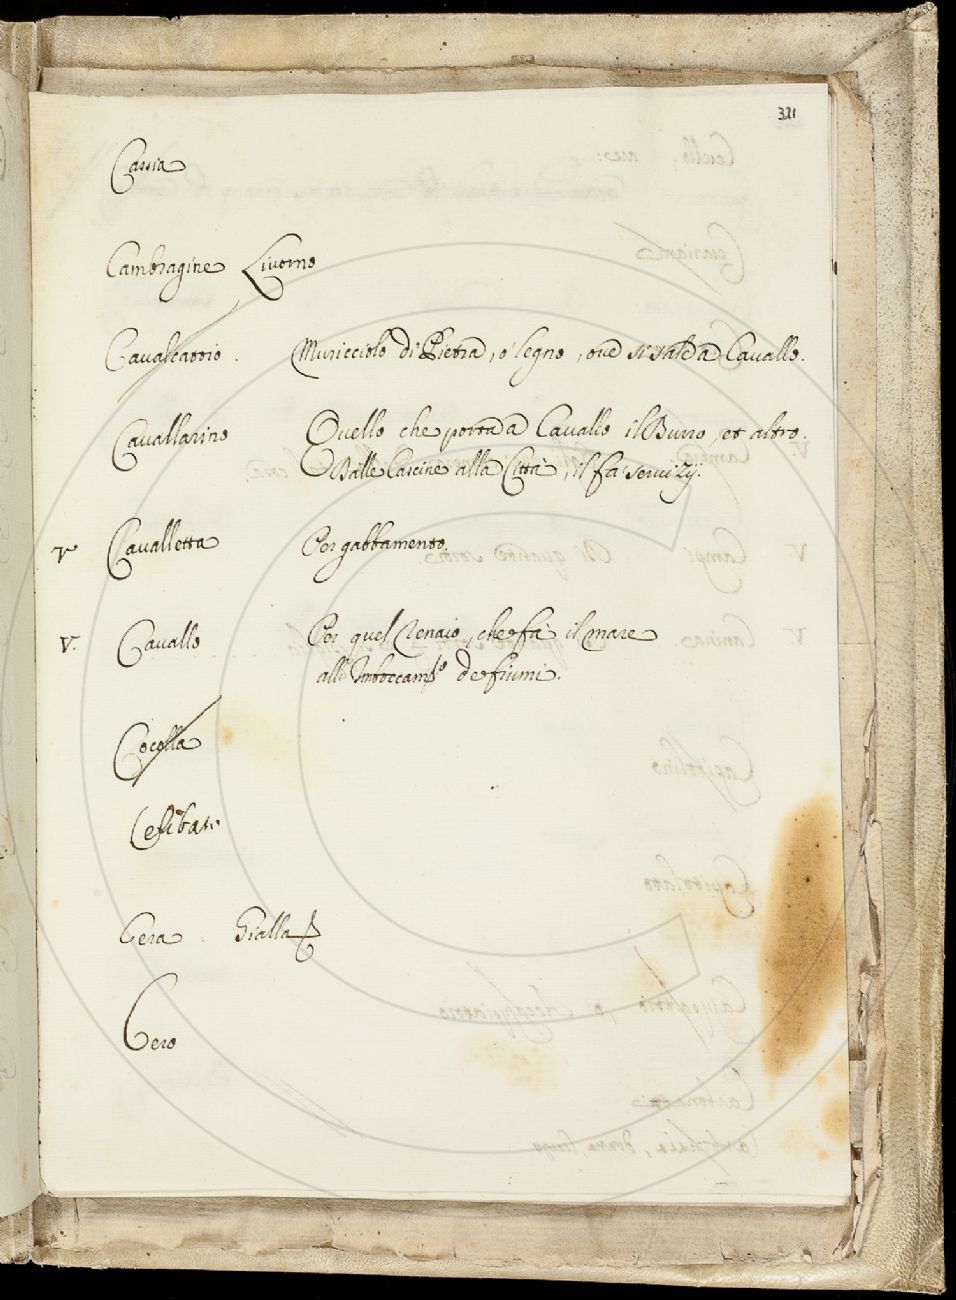 321
Cassia
Cambragine Livorno
Cavalcatoio. Muricciolo di Pietra, o' legno, ove si sale à Cavallo.
Cavallarino Quello che porta à Cavallo il Burro, et altro.
Dalle Cascine alla Città, il fà servizij.
V Cavalletta Per gabbamento.
V. Cavallo Per quel Renaio, che fà il mare
all' Imboccam.to de fiumi.
Cocolla
Celibato
Cera. Gialla
Cero